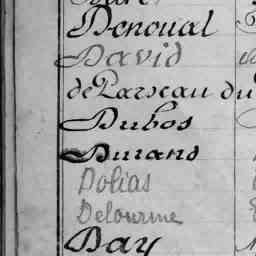 Denoual
David
de Parseau du
Dubos
Durand
Dolias
Delourme
Day